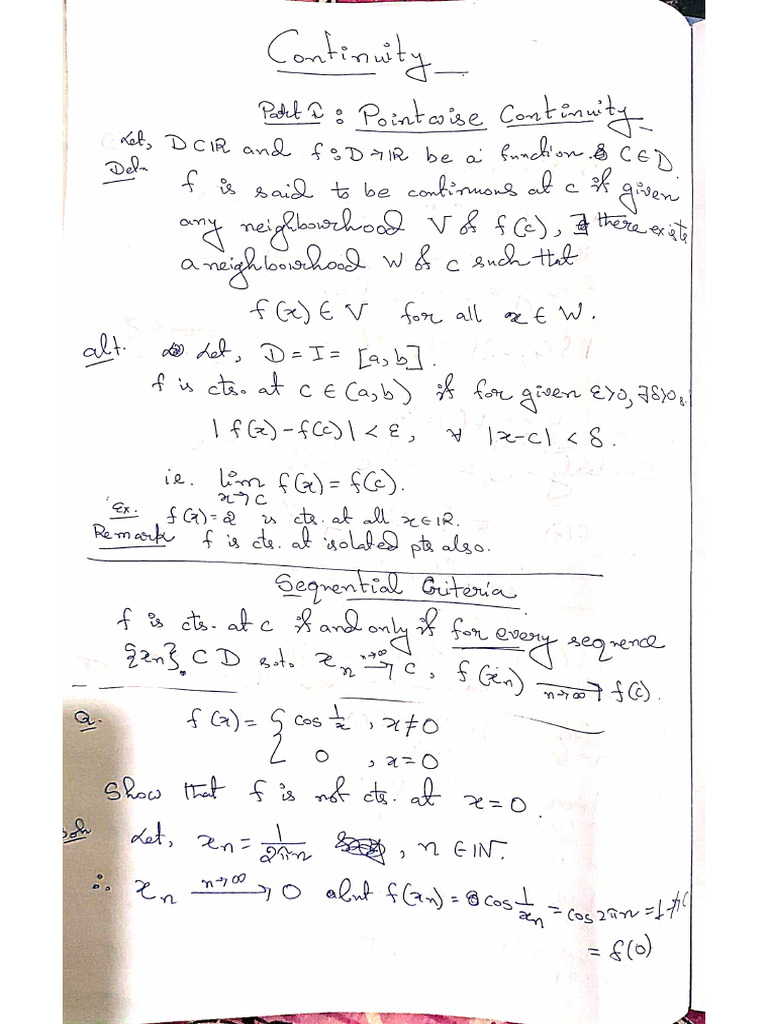 Continuity
Part I : Pointwise Continuity
Let, D⊂ℝ and f:D→ℝ be a function & C∈D.
Defn f is said to be continuous at c if given
any neighbourhood V of f(c), there exists
a neighbourhood W of c such that
f(x) ∈ V for all x ∈ W.
alt. Let, D = I = [a,b].
f is cts. at c ∈ (a,b) if for given ε>0, ∃δ>0 s.
|f(x)-f(c)| < ε, ∀ |x-c| < δ.
ie. lim x→c f(x) = f(c).
Ex. f(x)=2 is cts. at all x∈ℝ.
Remark f is cts. at isolated pts also.
Sequential Criteria
f is cts. at c if and only if for every sequence
{xn} ⊂ D s.t. xn →(n→∞) c, f(xn) →(n→∞) f(c).
Q. f(x) = { cos 1/x , x≠0
0 , x=0
Show that f is not cts. at x=0.
Soln Let, xn = 1/2πn , n ∈ ℕ.
∴ xn →(n→∞) 0 but f(xn) = cos 1/xn = cos 2πn = 1 ≠ 0
= f(0)